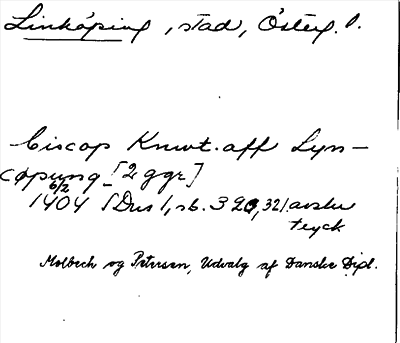 Linköping, stad, Österg.
biscop Knwt. aff Lyn-
cøpung [2 ggr]
1404 6/2 [Dns 1, sb. 320, 321. avskr
tryck
Molbech og Petersen, Udvalg af Danske Dipl.